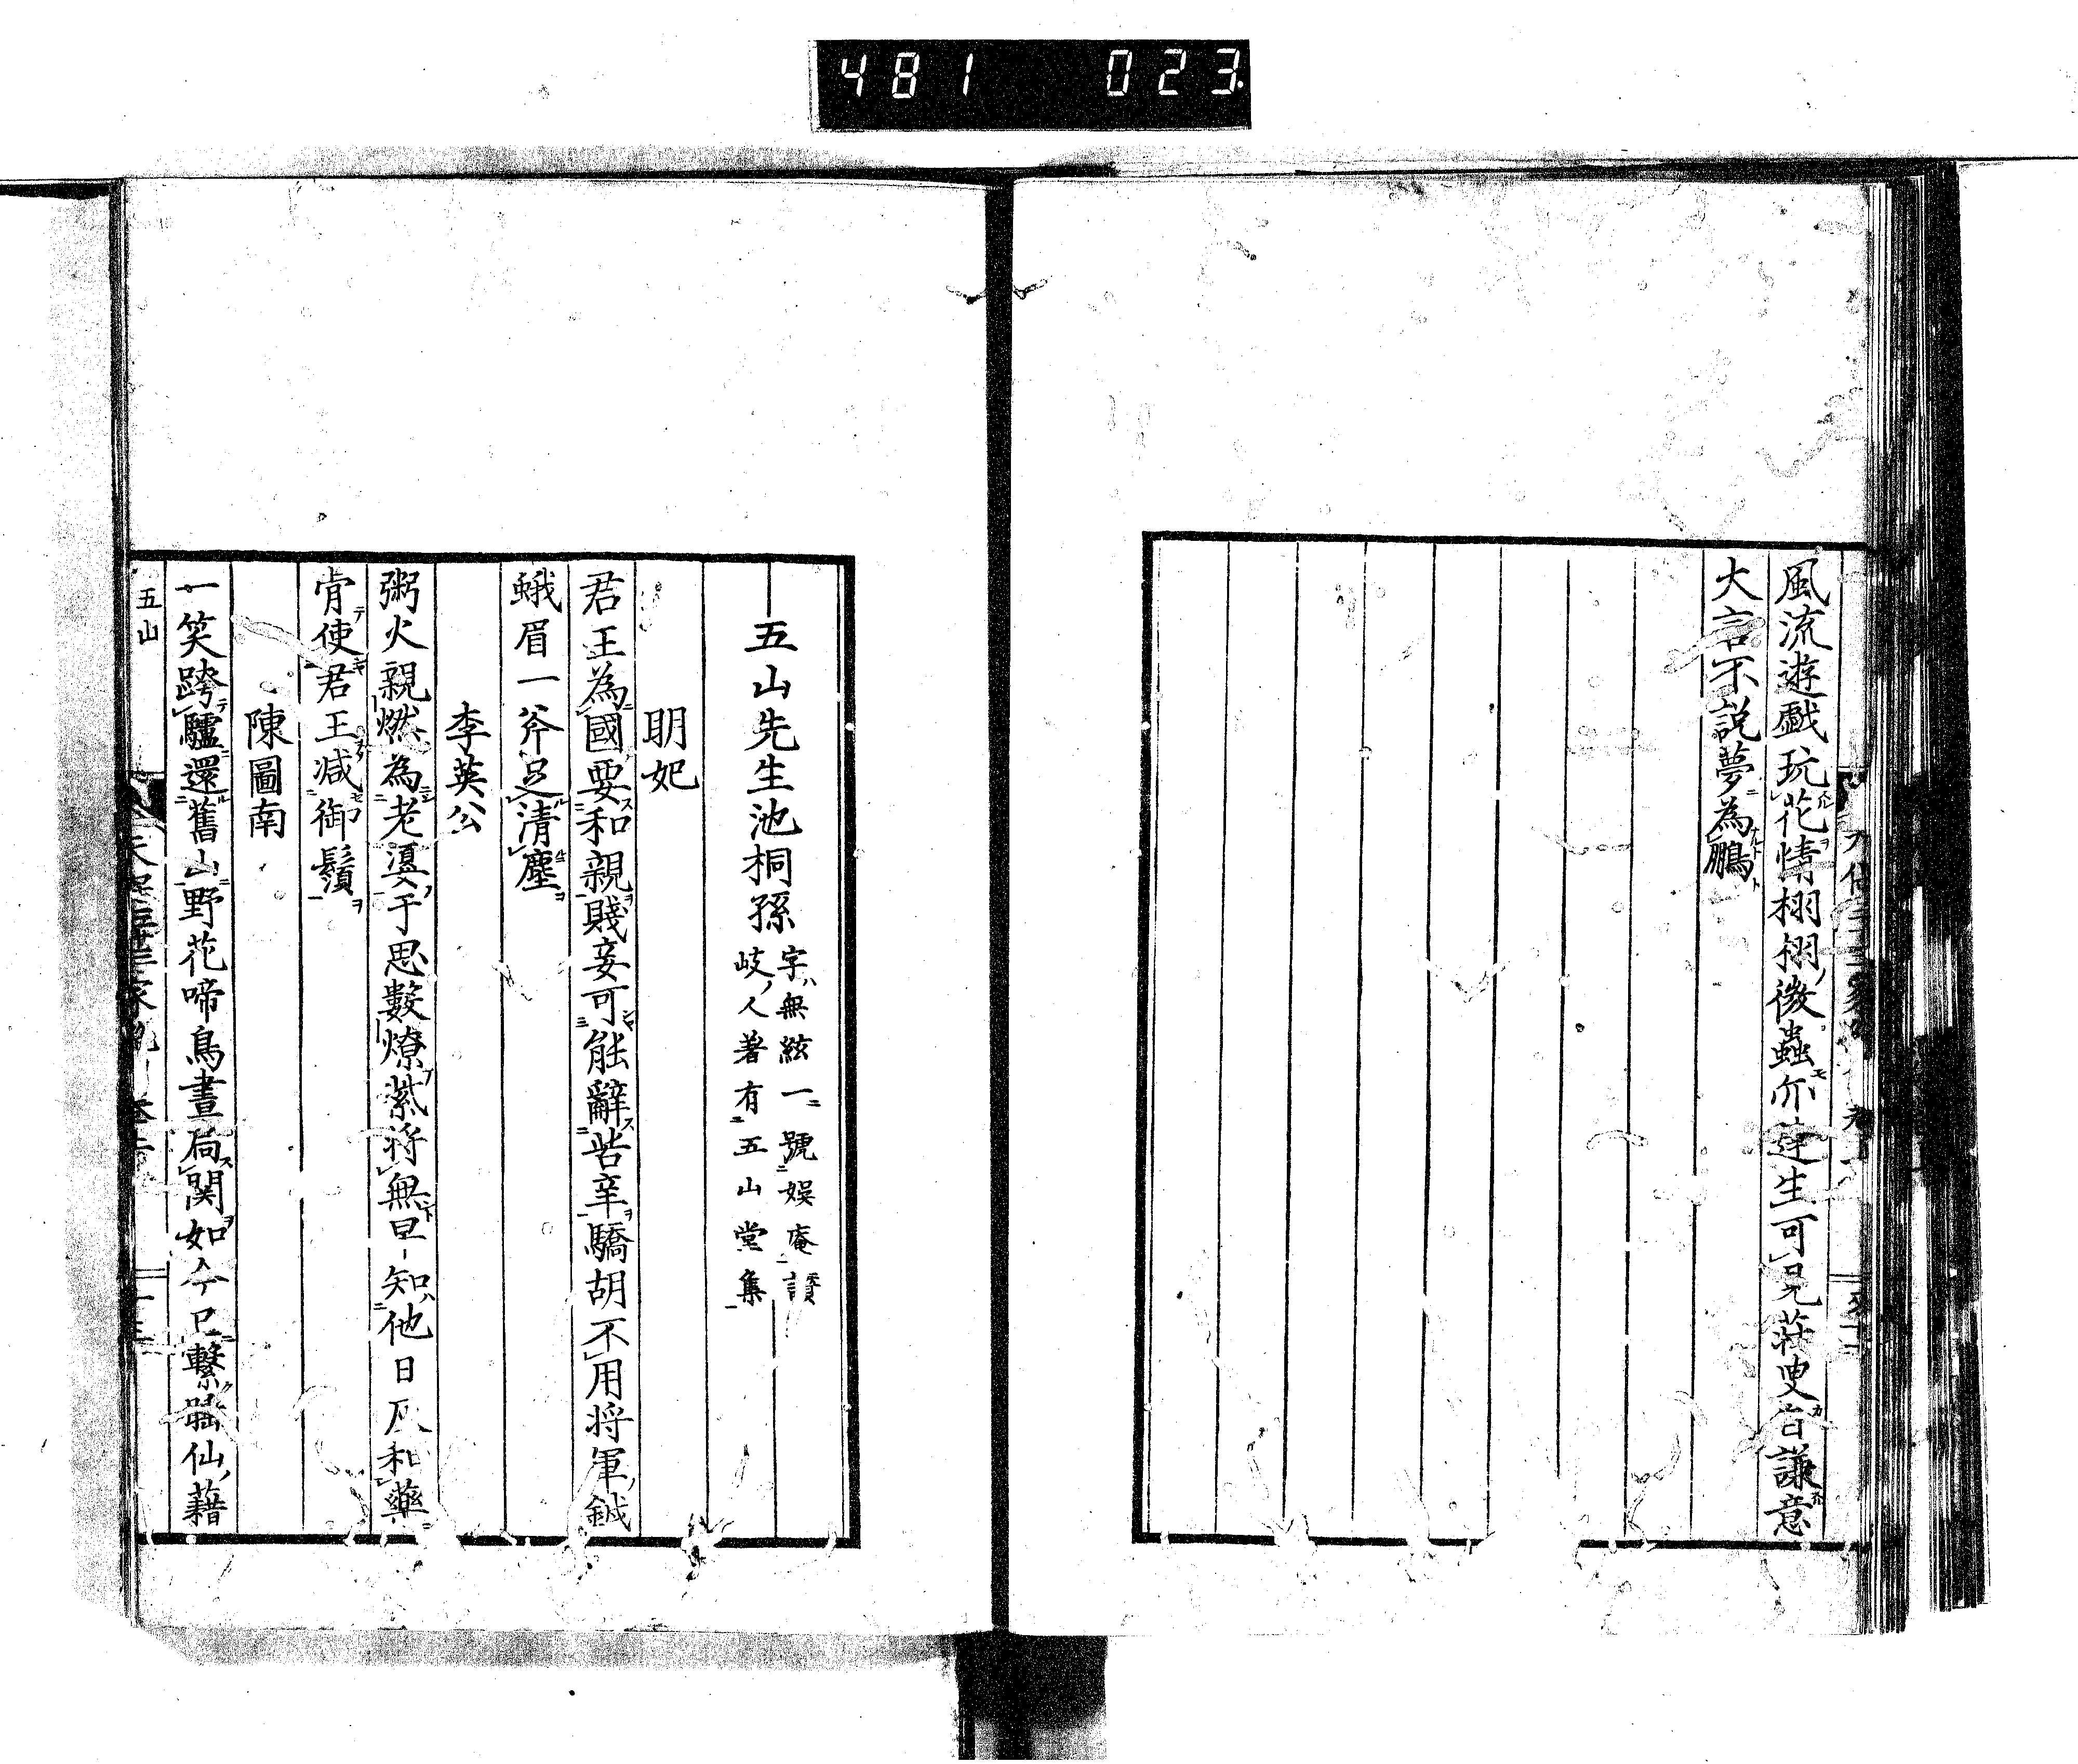 481 023
風流遊戯玩花情栩栩微蟲亦達生可見莊叟自謙意
大言不説夢為鵬
五山先生池桐孫
字無絃一號娯庵讃
岐人著有五山堂集
明妃
君王為國要和親賤妾可能辭苦辛驕胡不用將軍鉞
蛾眉一斧足清塵
李英公
粥火親燃為老婆于思數燎紫将無早知他日灰和藥
肯使君王减御鬚
陳圖南
一笑跨驢還舊山野花啼鳥晝扃関如今已繫睡仙籍
五山